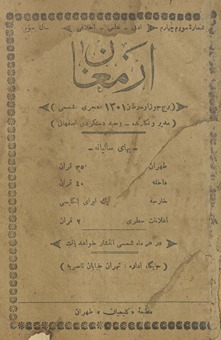 شماره سوم و چهارم ادبی - علمی - اخلاقی سال سوم
ارمغان
(برج جوزا و سرطان ۱۳۰۱ هجری شمسی)
(مدیر و نگارنده - وحید دستگردی اصفهانی)
- بهای سالیانه -
طهران ۳۵ قران
داخله ۴۰ قران
خارجه لیک ایران انگلیسی
اعلانات سطری ۲ قران
در هر ماه شمسی انتشار خواهد یافت
(جایگاه اداره - تهران خیابان ناصریه)
مطبعه کلیمیان طهران